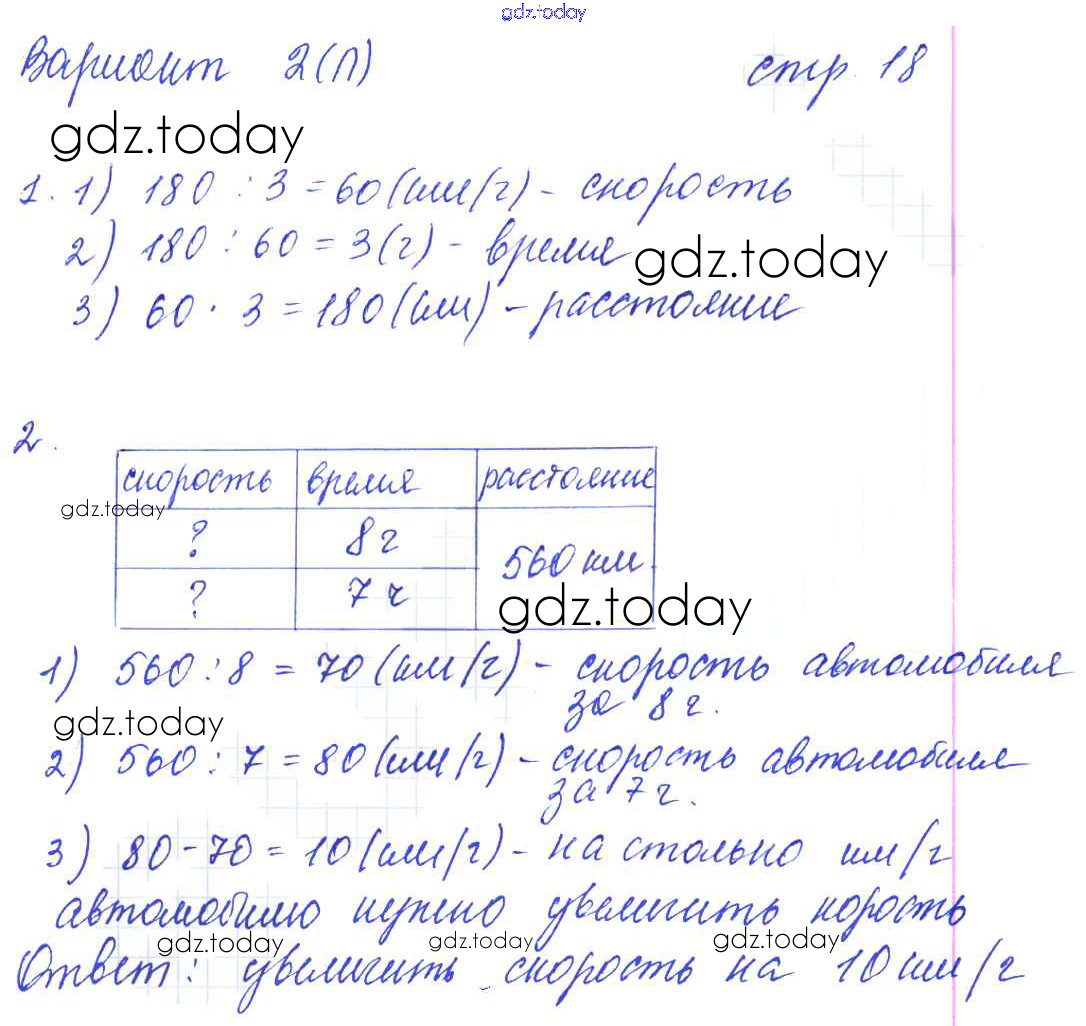 gdz.today
Вариант 2(П) стр. 18
gdz.today
1. 1) 180 : 3 = 60 (км/ч) - скорость
2) 180 : 60 = 3 (ч) - время
gdz.today
3) 60 · 3 = 180 (км) - расстояние
2.
скорость время расстояние
gdz.today
? 8 ч
560 км
? 7 ч
gdz.today
1) 560 : 8 = 70 (км/ч) - скорость автомобиля
за 8 ч.
gdz.today
2) 560 : 7 = 80 (км/ч) - скорость автомобиля
за 7 ч.
3) 80 - 70 = 10 (км/ч) - на столько км/ч
автомобилю нужно увеличить корость
gdz.today gdz.today gdz.today
Ответ: увеличить скорость на 10 км/ч